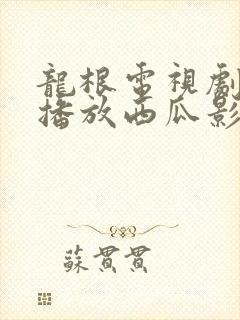 龍根電視劇
播放西瓜影
蘇貫貫